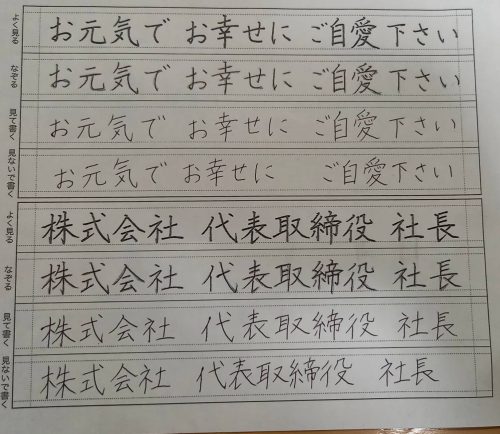 よく見る お元気で お幸せに ご自愛下さい
なぞる お元気で お幸せに ご自愛下さい
見て書く お元気で お幸せに ご自愛下さい
見ないで書く お元気で お幸せに ご自愛下さい
よく見る 株式会社 代表取締役 社長
なぞる 株式会社 代表取締役 社長
見て書く 株式会社 代表取締役 社長
見ないで書く 株式会社 代表取締役 社長